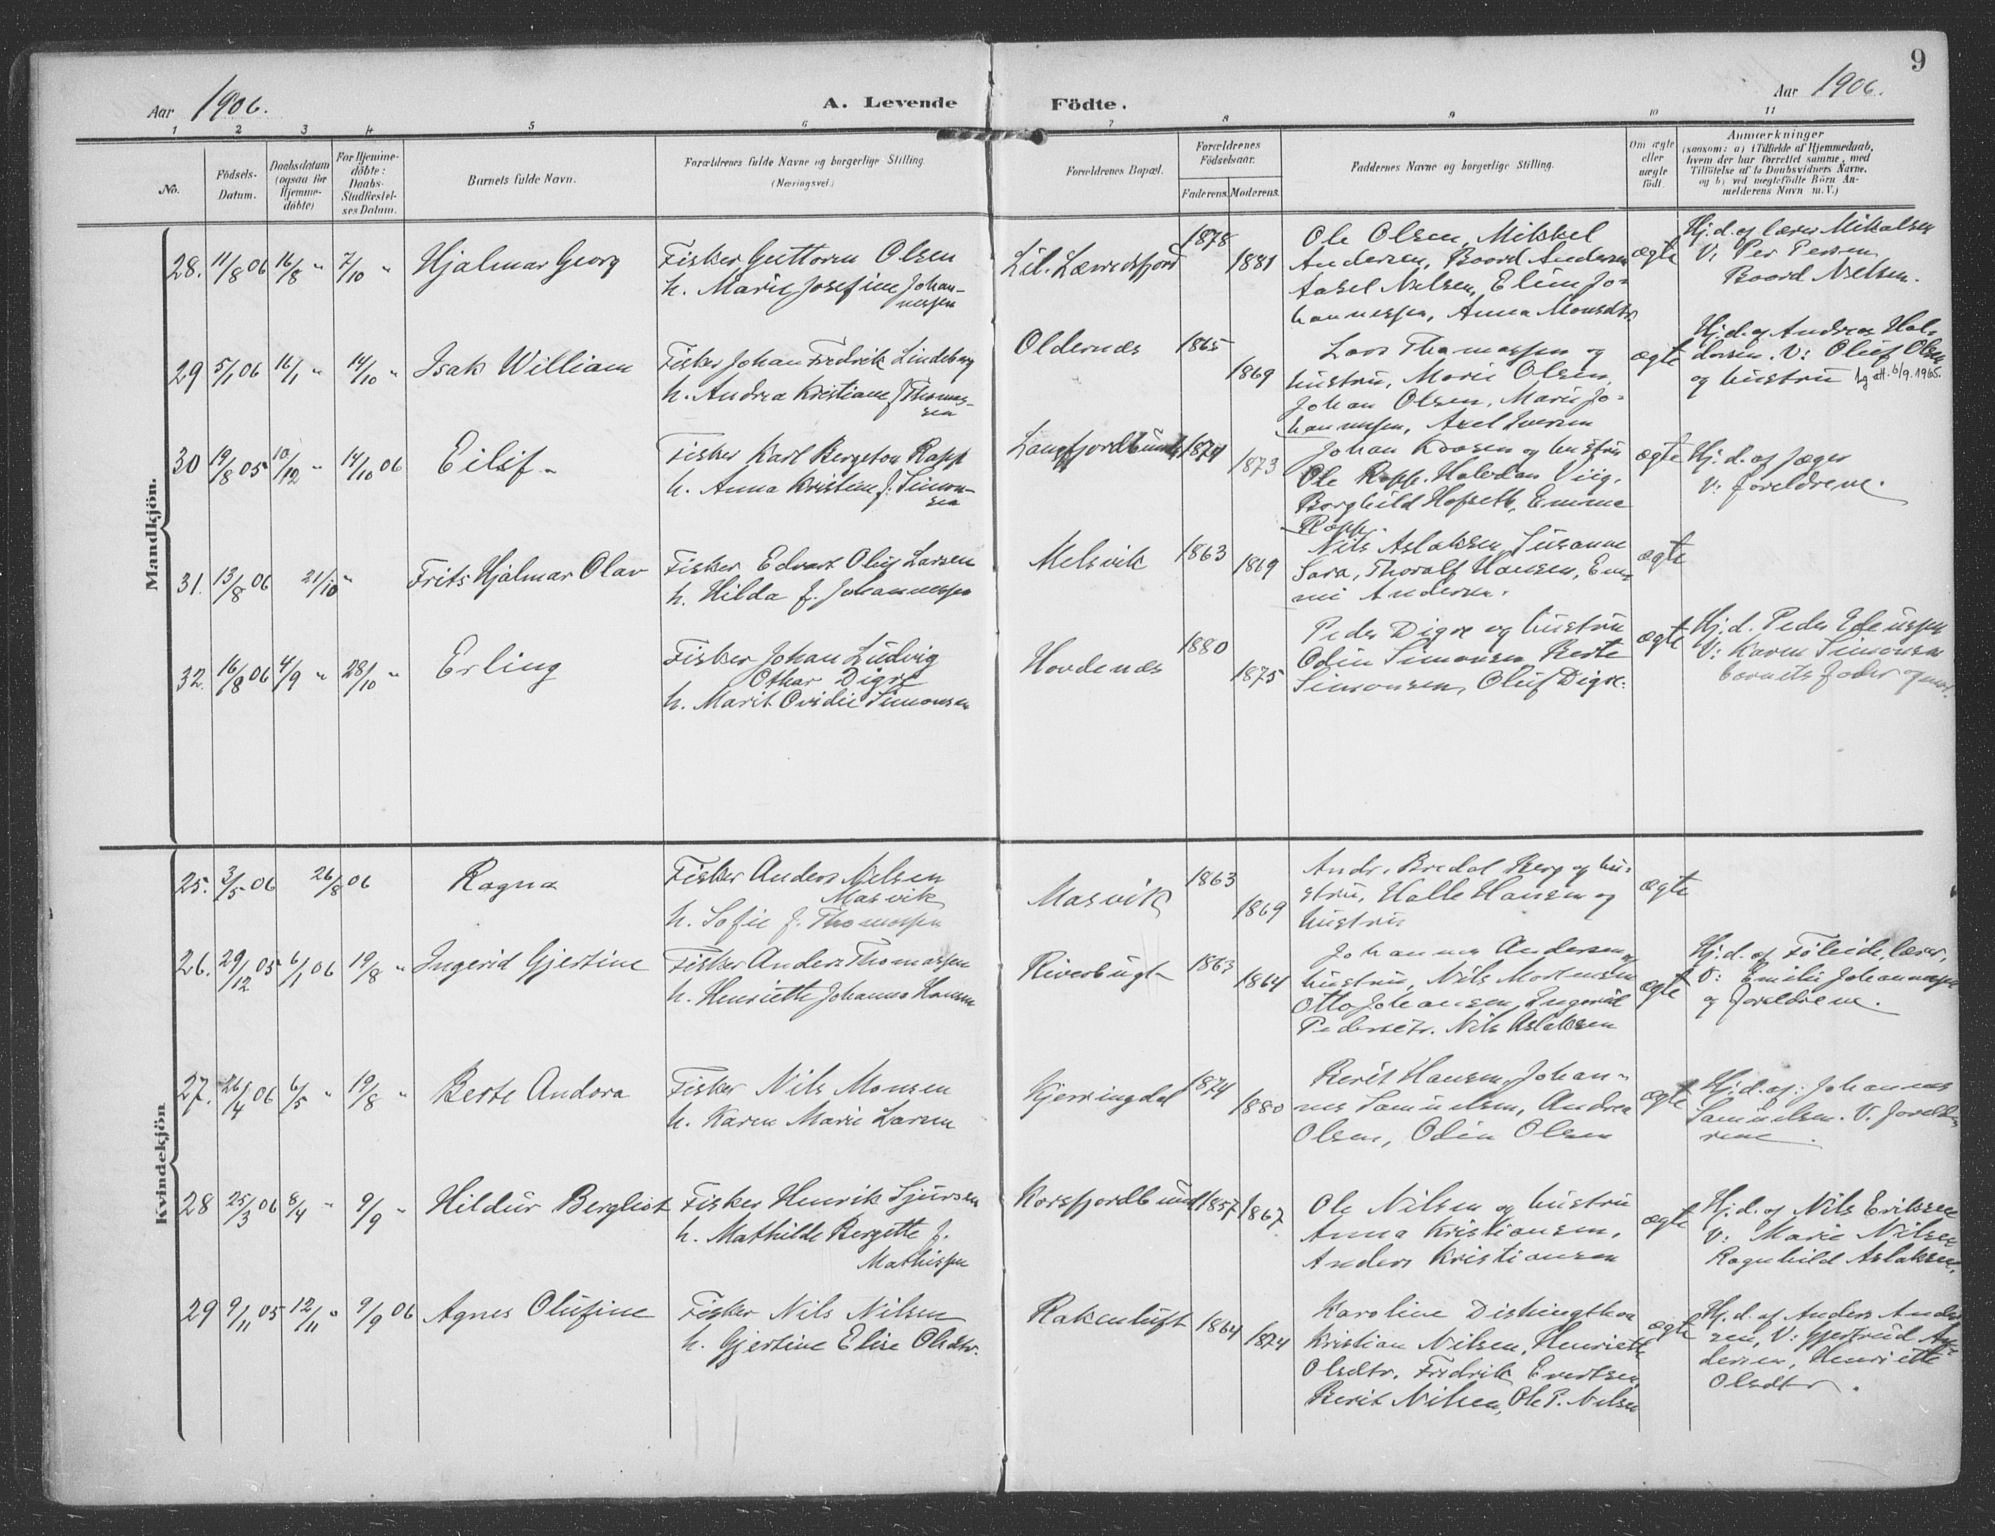 9
Aar 1906.
A. Levende Födte.
Aar 1906.
1 2 3 4 5 6 7 8 9 10 11
No.
Födsels-
Datum.
Daabsdatum
(ogsaa for
Hjemme-
döbte)
For Hjemme-
döbte:
Daabs-
Stadfæstel-
ses Datum.
Barnets fulde Navn.
Forældrenes fulde Navne og borgerlige Stilling.
(Næringsvei.)
Forældrenes Bopæl.
Forældrenes
Födselsaar.
Faderens. Moderens.
Faddernes Navne og borgerlige Stilling.
Om ægte
eller
uægte
födt.
Anmærkninger
(saasom: a) i Tilfælde af Hjemmedaab,
hvem der har forrettet samme, med
Tilföielse af to Daabsvidners Navne,
og b) ved uægtefödte Börn An-
melderens Navn m. V.)
Mandkjön.
28. 11/8 06 16/8 " 7/10 " Hjalmar Georg
Fisker Guttorm Olsen
h. Marie Josefine Johan-
nessen
Lil. Lerredsfjord 1878 1881
Ole Olsen, Mikkel
Andersen, Boord Andersen
Aksel Nilsen, Elen Jo-
hannessen, Anna Monsdtr
ægte
Hj.d. af lærer Mikalsen
V: Per Persen,
Boord Nielsen.
29 5/1 06 16/1 " 14/10 " Isak William
Fisker Johan Fredrik Lindeberg
h. Andrea Kristiane f. Thomas-
sen
Oldernæs 1865 1869
Lars Thomassen og
hustru, Marie Olsen,
Johan Olsen, Marie Jo-
hannessen, Axel Iversen
ægte
Hj.d. af Andreas Hal-
dorsen. V: Oluf Olsen
og hustru Lg att. 6/9. 1965.
30 19/8 05 10/12 " 14/10 06 Eilif
Fisker Karl Bergeton Rapp
h. Anna Kristine f. Simon-
sen
Langfjordbund 1874 1873
Johan Koosen og hustru
Ole Rapp. Halvdan Viig,
Borghild Hofseth, Emma
Rapp.
ægte
Hj.d. af Jæger
V: Foreldrene.
31. 13/8 06 21/10 " Frits Hjalmar Olav
Fisker Edvart Oluf Larsen
h. Hilda f. Johannessen
Melsvik 1863 1869
Nils Aslaksen, Susanne
Sara, Thoralf Hansen, Em-
mi Andersen.
ægte
32. 16/8 06 4/9 " 28/10 " Erling
Fisker Johan Ludvig
Othar Digre
h. Marit Ovidie Simonsen
Hovdenæs 1880 1875
Peder Digre og hustru
Odin Simonsen, Berte
Simonsen, Oluf Digre.
ægte
Hj.d. Peder Edeussen
V: Karen Simonsen
barnets fader og mor.
Kvindekjön
25. 3/5 06 26/8 06 Ragna
Fisker Anders Nilsen
Masvik
h. Sofie f. Thomassen
Masvik 1863 1869
Andr. Bredal Berg og hu-
stru, Halle Hansen og
hustru
ægte
26. 29/12 05 6/1 06 19/8 " Ingerid Gjertine
Fisker Anders Thomassen
h. Henriette Johanna Hansen
Riverbugt 1863 1864
Johannes Andersen og
hustru, Nils Mortensen
Otto Johansen, Ingerid
Pedersdtr. Nils Aslaksen
ægte
Hj.d. af Föleide, lærer,
V: Emilie Johannessen
og foreldrene.
27. 26/4 06 6/5 " 19/8 " Berte Andora
Fisker Nils Monsen
h. Karen Marie Larsen
Kjerringdal 1874 1880
Berit Hansen, Johan-
nes Samuelsen, Andrea
Olsen, Odin Olsen
ægte
Hj.d. af: Johannes
Samuelsen. V. foreld-
rene.
28 25/3 06 8/4 " 9/9 " Hildur Bergliot
Fisker Henrik Sjursen
h. Mathilde Bergette f.
Mathissen
Korsfjordbund 1857 1867
Ole Nilsen og hustru
Anna Kristiansen,
Anders Kristiansen
ægte
Hj.d. af Nils Eriksen
V: Marie Nilsen
Ragnhild Aslaksen.
29 9/11 05 12/11 " 9/9 06 Agnes Olufine
Fisker Nils Nilsen
h. Gjertine Elise Olsdtr.
Rakenluft 1864 1874
Karoline
Kristian Nilsen, Henriette
Olsdtr. Fredrik Evertsen,
Berit Nilsen, Ole P. Nilsen
ægte
Hj.d. af Anders Ander-
sen, V: Gjertrud An-
dersen, Henriette
Olsdtr.